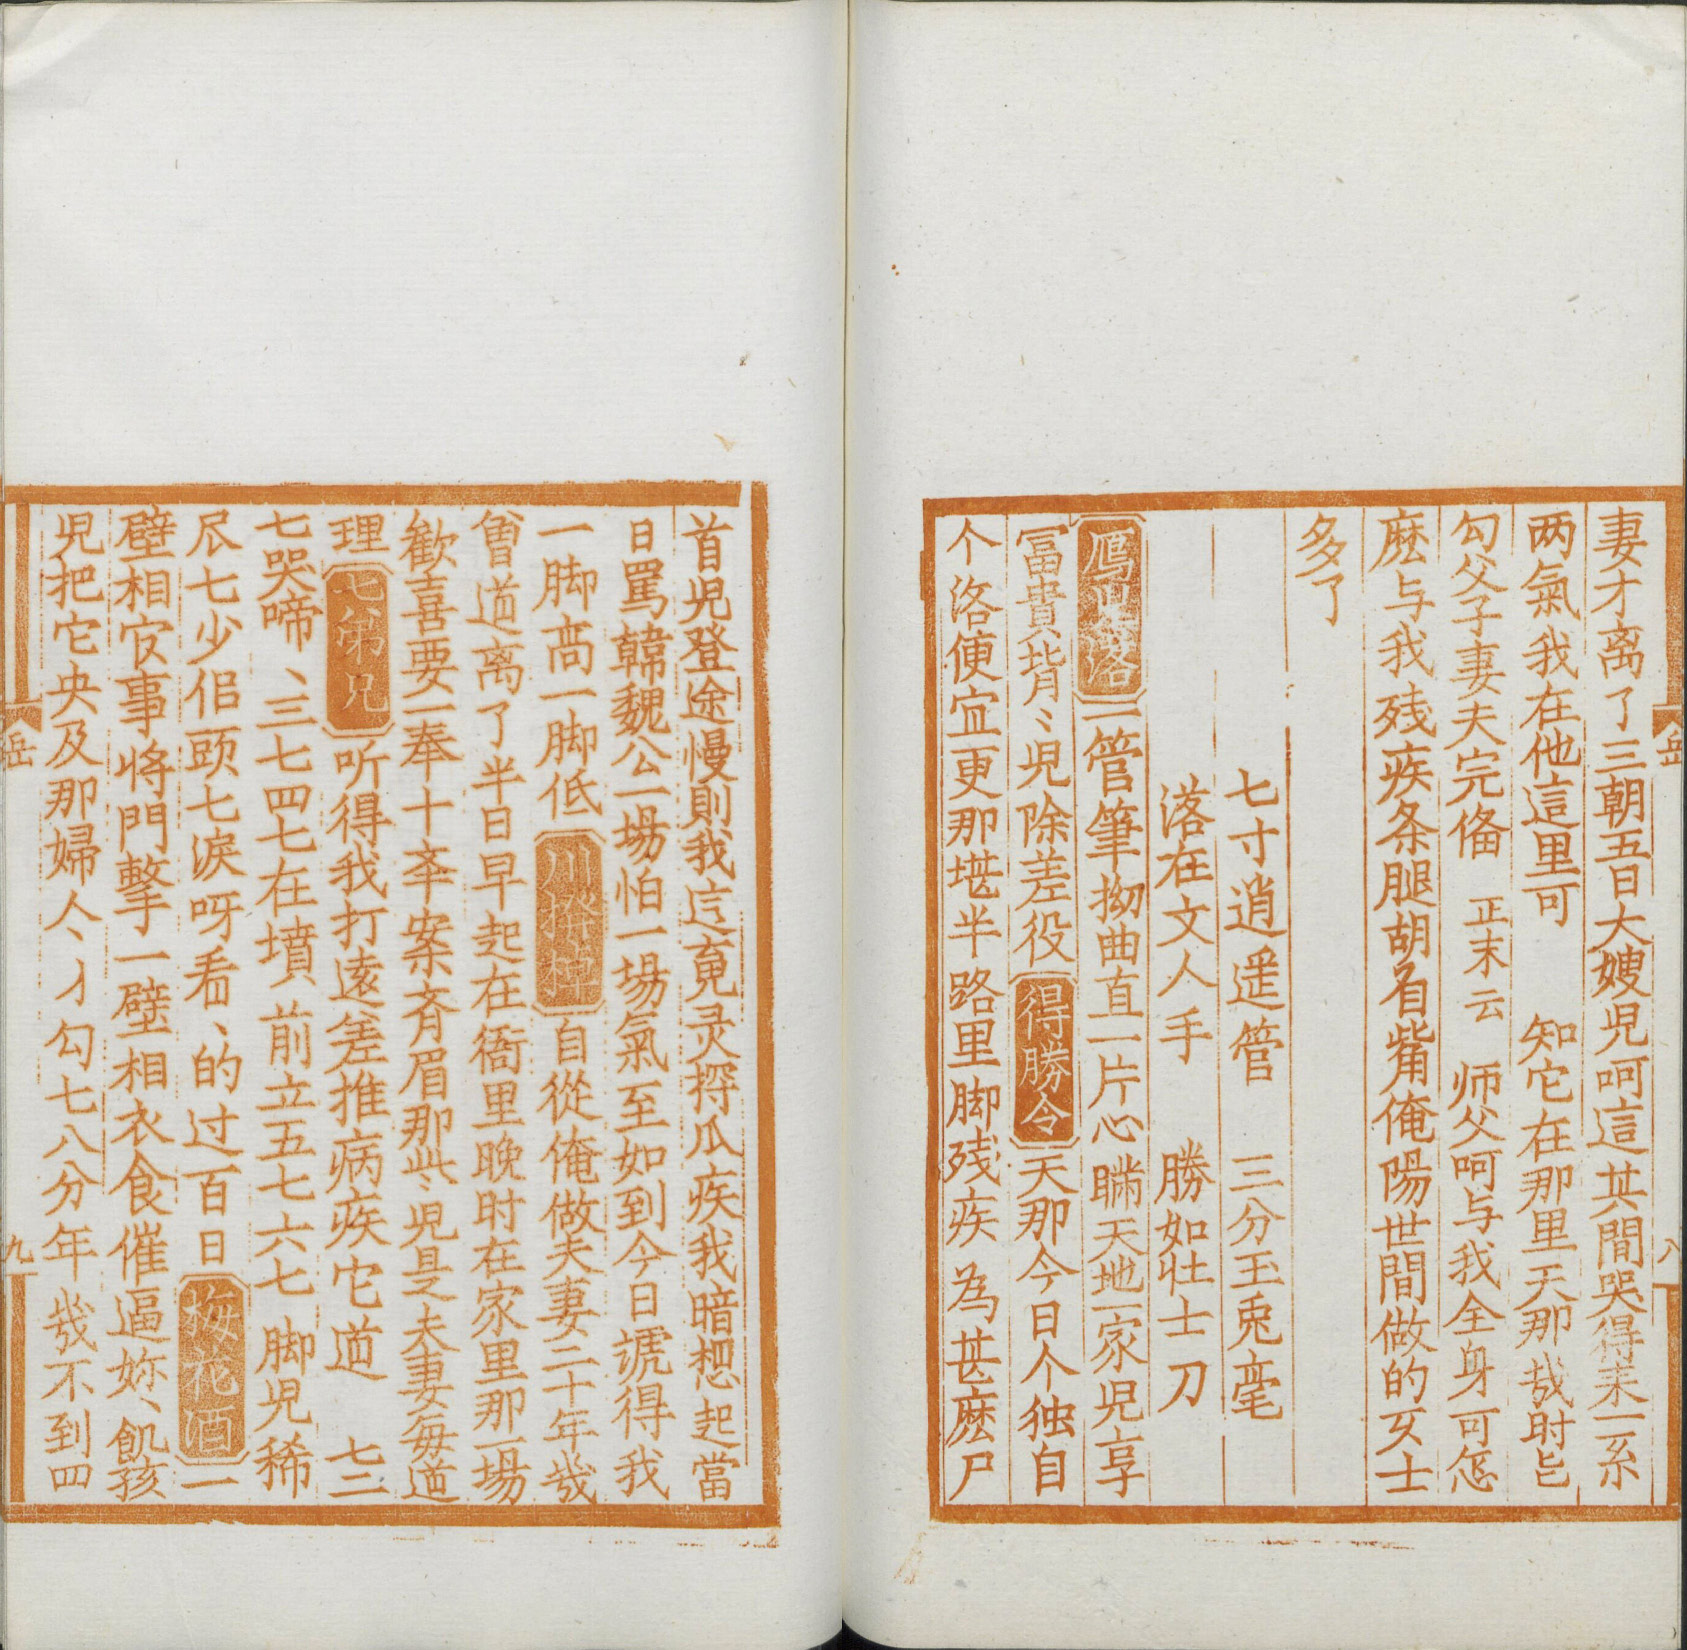 妻才离了三朝五日大嫂児呵這其間哭得来一系
两氣我在他這里可　知它在那里天那㦲时㠯
勾父子妻夫完俻　正末云　师父呵与我全身可怎
麽与我残疾条腿胡有觜角俺陽世間做的叐士
多了
七寸逍遥管　三分玉兎毫
落在文人手　勝如壮士刀
鴈児落一管筆拗曲直一片心瞞天地一家児享
冨貴背〻児除差役得勝令天那今日个独自
个洛便宜更那堪半路里脚残疾為甚麽尸
岳　八
首児登途慢則我這竟灵㨍瓜疾我暗想起當
日罵韓魏公一塲怕一場氣至如到今日諕得我
一脚高一脚低川撥棹自從俺做夫妻二十年㡬
曾道离了半日早起在衙里晚时在家里那一場
歓喜要一奉十夲案斉眉那些〻児是夫妻每道
理七弟兄听得我打逺差推病疾它道　七二
七哭啼〻三七四七在墳前立五七六七脚児稀
尽七少佀頭七淚呀看〻的过百日梅花酒一
壁相官事将門擊一壁相衣食催逼妳〻飢孩
児把它央及那婦人〻才勾七八分年㡬不到四
岳　九